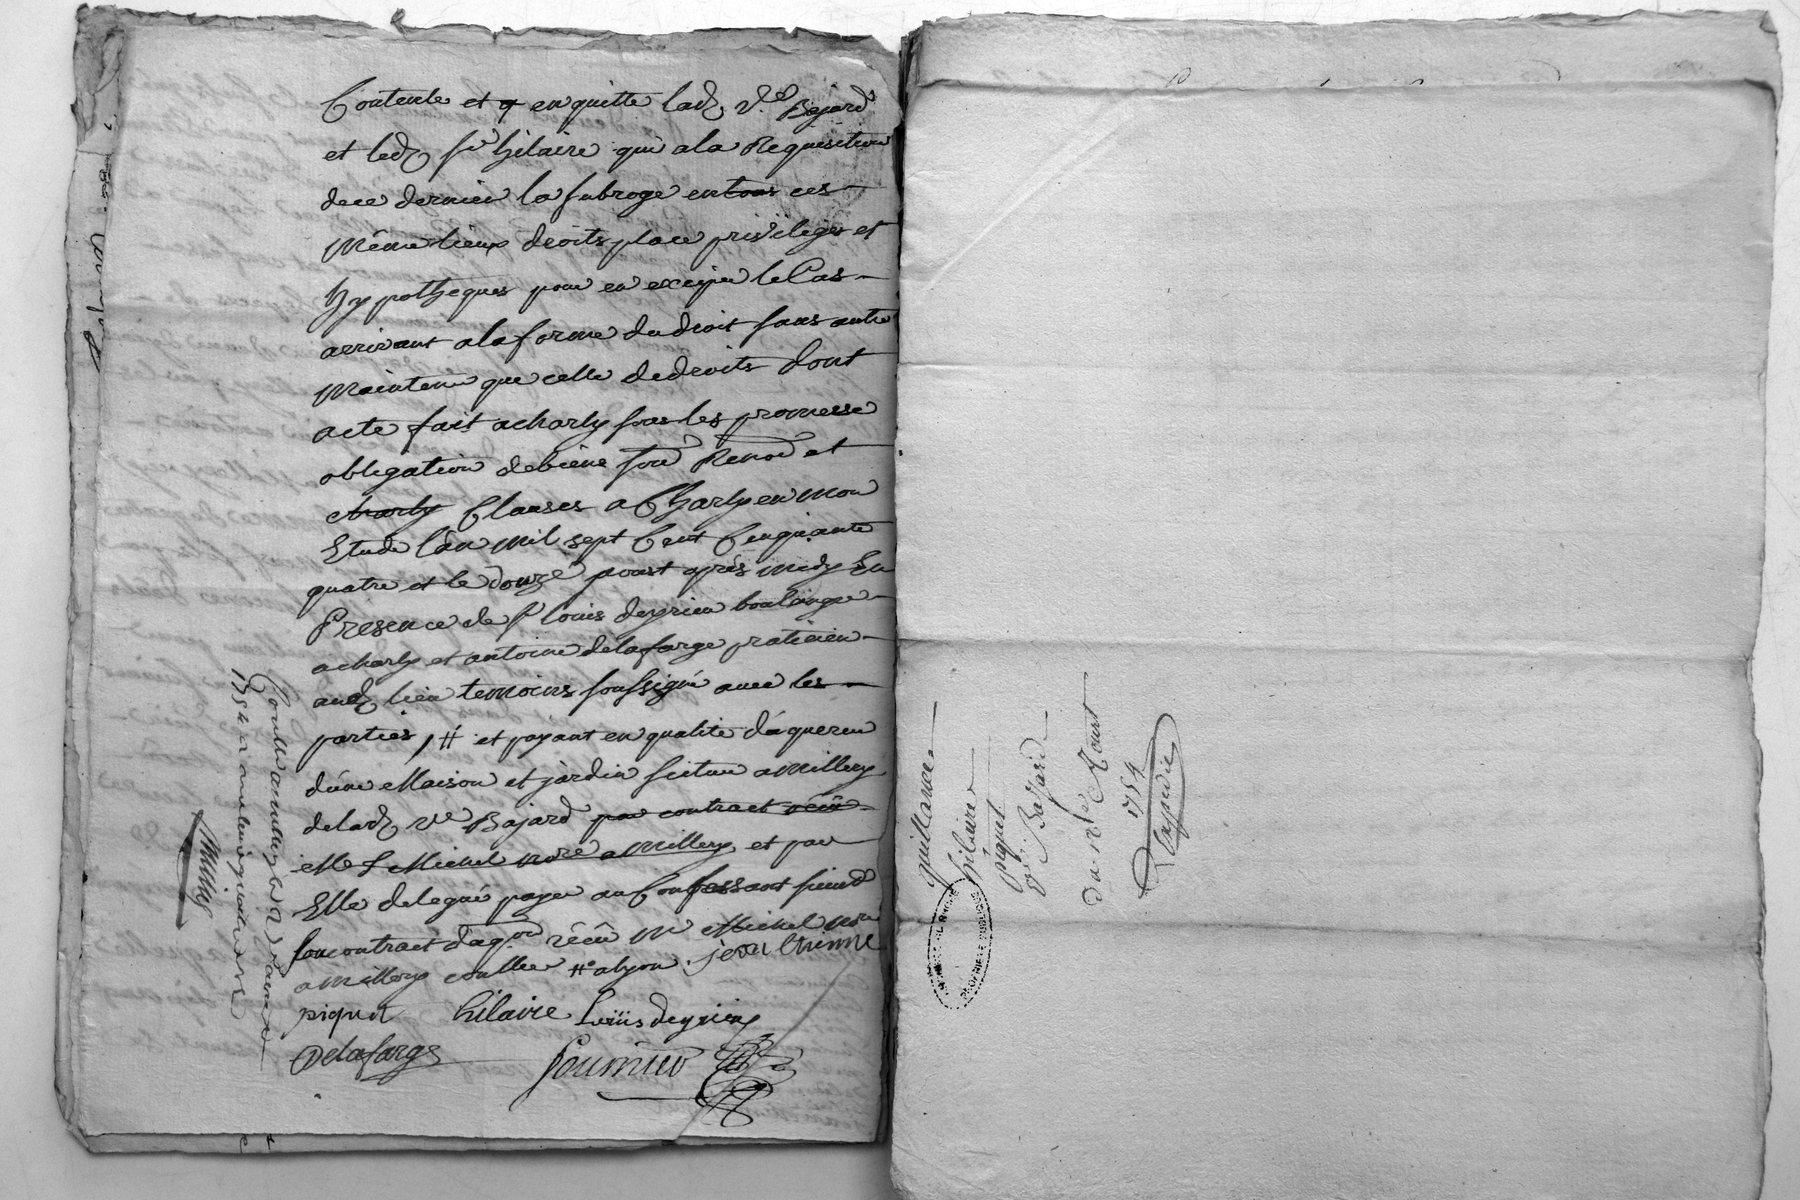 Contente et q en quitte lad. v.e Bajard
et led. sr hilaire qui a la Requisition
de ce dernier la subroge en tous ces
Même lieux droits place privileges et
hypotheques pour en exciper le Cas
arrivant a la forme du droit sans autre
Maintenue que celle de droits dont
acte fait a charly sous les promesse
obligation de biens sou Renon et
charly Clauses a Charly en mon
Etude l'an mil sept Cent Cinquante
quatre et le douze aoust après midy En
Presence de sr louis deyrieu boulange
a charly et antoine delafarge praticien
aud. lieu temoins soussigné avec les
parties, # et payant en qualité d'aquereur
d'une Maison et jardin scitue a Millery
de lad. ve Bajard par contract réçu
Me Michel nore a Millery et par
Elle delegué payer au Confessant suivd
son contract d'aqon réçu Me Michel nre
a Millery controllée # a lyon. jean Etienne
piquet hilaire Loüis deyrieu
Delafarge
fournier
Controllé a millery le 12
1754
quittance
hilaire
piquet
Ve Bajard
du 12e Aoust
1754
ARCHIVES DU RHONE
PROPRIETE PUBLIQUE